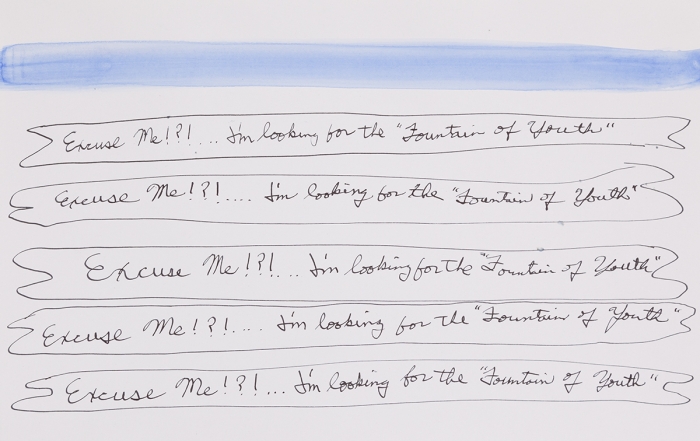 Excuse Me!?!.... I'm looking for the "Fountain of Youth"
Excuse Me!?!.... I'm looking for the "Fountain of Youth"
Excuse Me!?!... I'm looking for the "Fountain of Youth"
Excuse Me!?!.... I'm looking for the "Fountain of Youth"
Excuse Me!?!... I'm looking for the "Fountain of Youth"